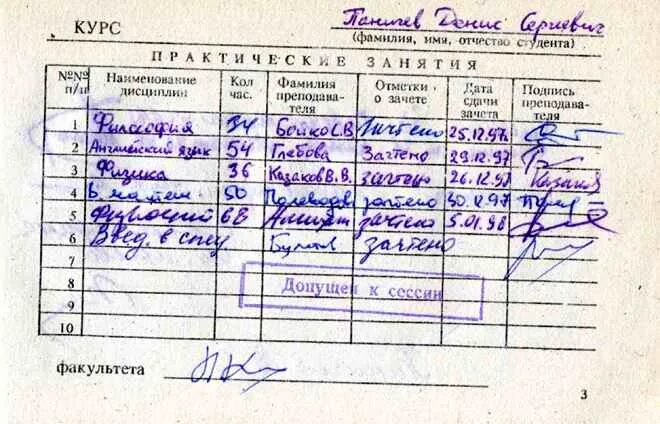 КУРС
Паничев Денис Сергеевич
(фамилия, имя, отчество студента)
ПРАКТИЧЕСКИЕ ЗАНЯТИЯ
№№ п/п Наименование дисциплин Кол час. Фамилия преподава- теля Отметки о зачете Дата сдачи зачета Подпись преподава- теля
1 Философия 34 Бойко С.В. Зачтено 25.12.97
2 Английский язык 54 Глебова Зачтено 29.12.97
3 Физика 36 Казаков В.В. зачтено 26.12.97 Казаков
4 50 зачтено 30.12.97
5 68 зачтено 5.01.98
6 Введ. в спец зачтено
7
8
9
10
Допущен к сессии
факультета
3